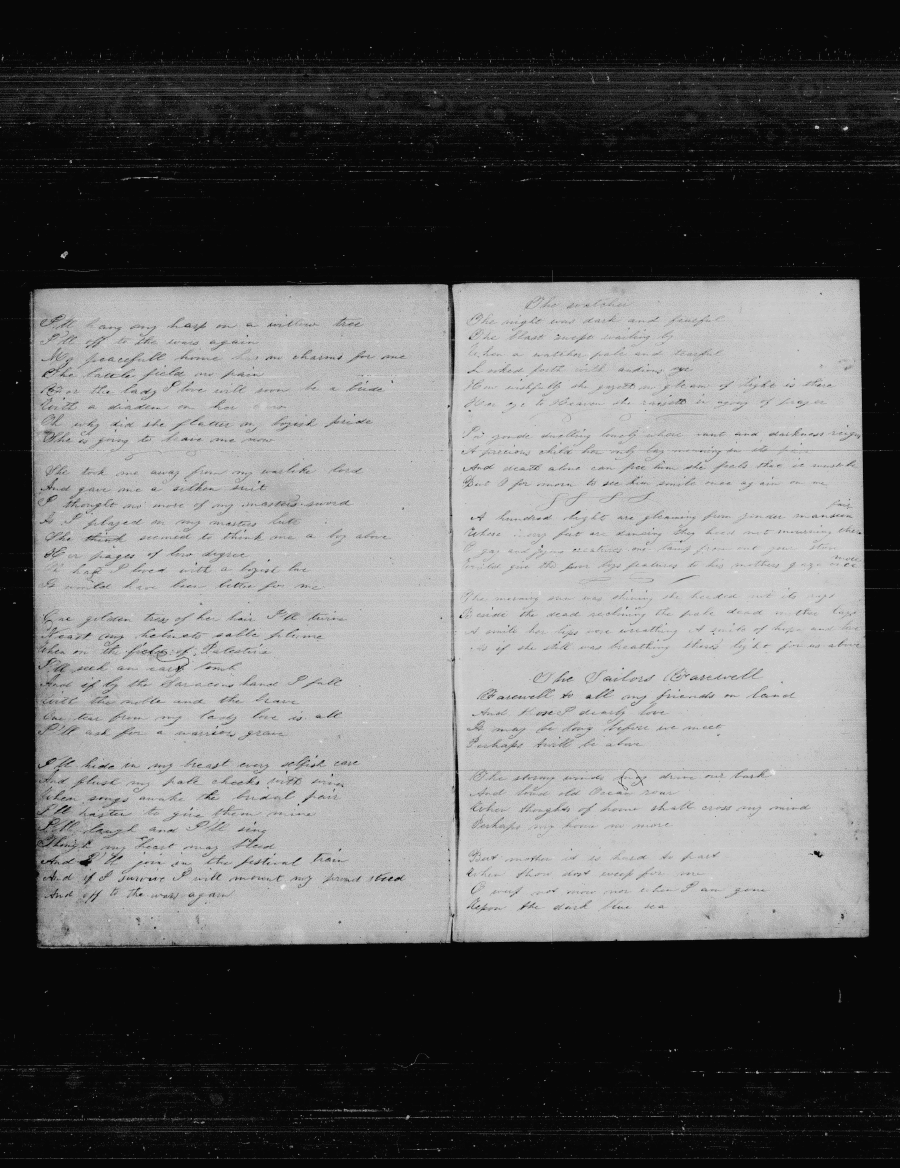 I'll hang my harp on a willow tree
I'll off to the wars again
My peacefull home has no charms for me
The battle field no pain
For the lady I love will soon be a bride
With a diadem on her
Oh why did she flatter my boyish pride
She is going to leave me now
She took me away from my warlike lord
And gave me a silken suit
I thought no more of my masters sword
As I played on my masters lute
She seemed to think me a boy above
Her pages of low degree
had I loved with a boyish love
It would have been better for me
One golden tress of her hair I'll twine
In my helmets sable plume
When on the field of Palestine
I'll seek an early tomb
And if by the Saracens hand I fall
With the noble and the brave
One tear from my lady love is all
I'll ask for a warriors grave
I'll hide in my breast every selfish care
And flush my pale cheeks with wine
When songs awake the bridal pair
I'll hasten to give them mine
I'll laugh and I'll sing
Though my heart may bleed
And I'll join in the festival train
And if I survive I will mount my proud steed
And off to the wars again
The watcher
The night was dark and fearful
The blast swept wailing by
When a watcher pale and tearful
Looked forth with anxious eye
How wishfully she gazes no gleam of light is there
Her eye to Heaven she raises in agony of prayer
dwelling lonely where want and darkness reign
A precious child her only lay moaning in its pain
And death alone can free him she feels that it must be
But O for morn to see him smile once again on me
A hundred lights are gleaming from yonder mansion fair
Whose feet are dancing they heed not mourning there
O gay and young creatures one lamp from out your store
Would give the poor boys features to his mothers gaze once more
The morning sun was shining she heeded not its rays
Beside the dead reclining the pale dead mother lays
A smile her lips were wreathing A smile of hope and love
As if she still was breathing there's light for us above
The Sailors Farewell
Farewell to all my friends on land
And those I dearly love
It may be long before we meet
Perhaps twill be above
The stormy winds may drive our bark
And loud old Ocean roar
When thoughts of home shall cross my mind
Perhaps my home no more
But mother it is hard to part
When thou dost weep for me
O weep not now nor when I am gone
Upon the dark blue sea